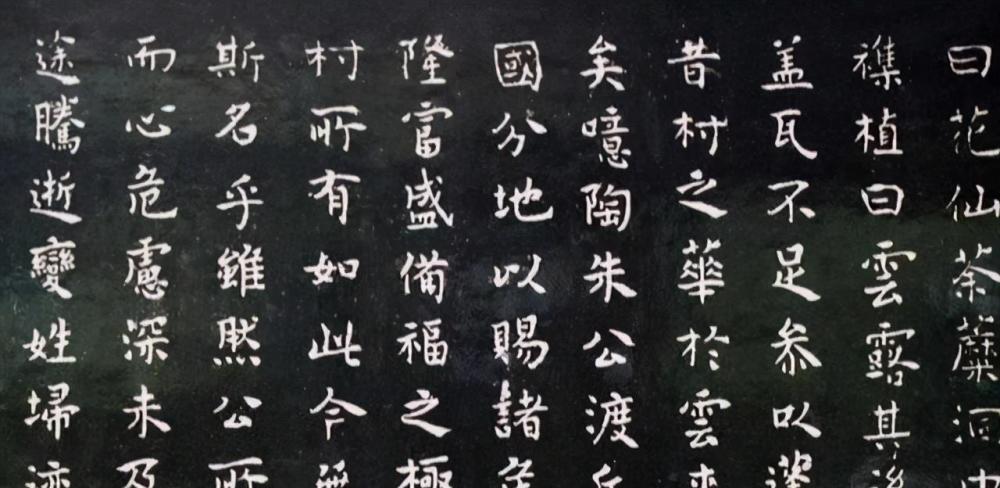 曰花仙荼蘼洞中
襍植曰雲露其後
盖瓦不足叅以
昔村之華於雲來
矣噫陶朱公渡
國分地以賜諸
隆富盛備福之極
村所有如此今無
斯名乎雖然公所
而心危慮深未及
途騰逝變姓埽迹